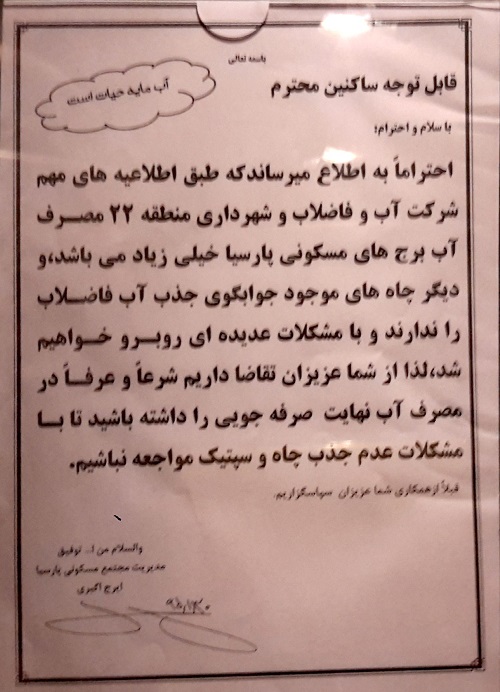 باسمه تعالی
آب مایه حیات است
قابل توجه ساکنین محترم
با سلام و احترام؛
احتراماً به اطلاع میرساندکه طبق اطلاعیه های مهم
شرکت آب و فاضلاب و شهرداری منطقه ۲۲ مصرف
آب برج های مسکونی پارسیا خیلی زیاد می باشد،و
دیگر چاه های موجود جوابگوی جذب آب فاضلاب
را ندارند و با مشکلات عدیده ای روبرو خواهیم
شد،لذا از شما عزیزان تقاضا داریم شرعاً و عرفاً در
مصرف آب نهایت صرفه جویی را داشته باشید تا با
مشکلات عدم جذب چاه و سپتیک مواجعه نباشیم.
قبلاً ازهمکاری شما عزیزان سپاسگزاریم.
والسلام من ا... توفیق
مدیریت مجتمع مسکونی پارسیا
ایرج اکبری